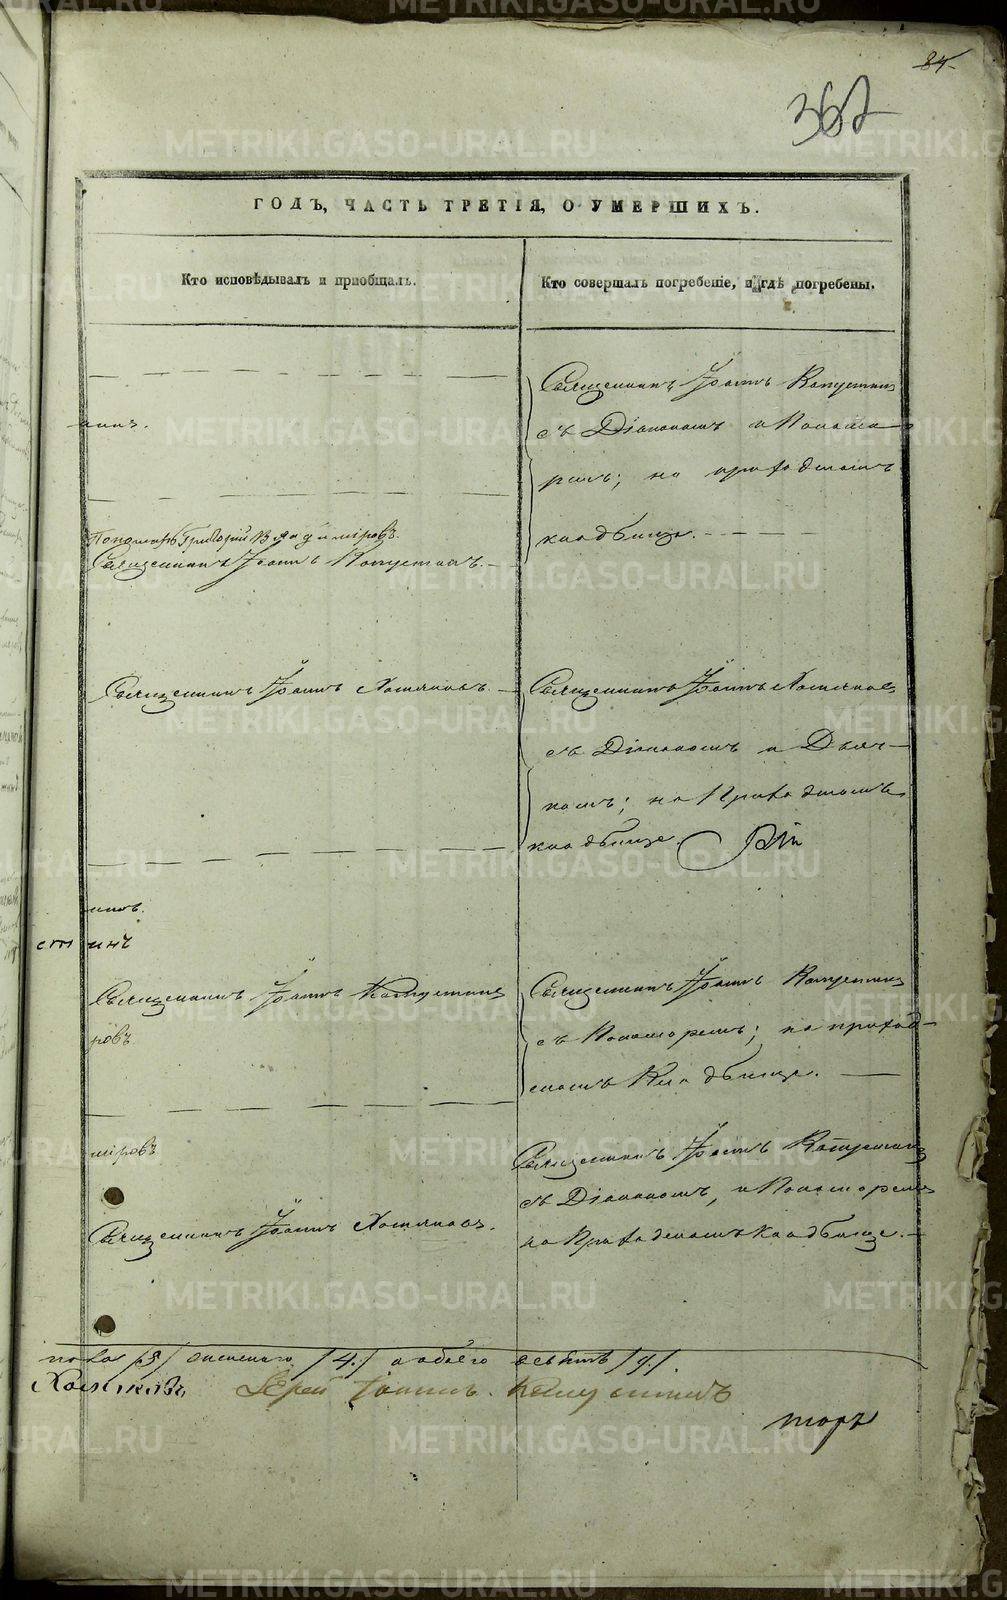 84
367
ГОДЪ, ЧАСТЬ ТРЕТІЯ, О УМЕРШИХЪ.
Кто исповѣдывалъ и пріобщалъ.
Кто совершалъ погребеніе, и гдѣ погребены.
Священникъ Іоаннъ Капустинъ
съ Діакономъ и Понома-
ремъ; на приходскомъ
кладбище.
Пономарь Григорій Владиміровъ.
Священникъ Іоаннъ Капустинъ.
Священникъ Іоаннъ Хотяновъ.
Священникъ Іоаннъ Хотяновъ
съ Діакономъ и Дьяч-
комъ; на Приходскомъ
кладбище.
инъ.
стинъ
Священникъ Іоаннъ Капустинъ
ровъ
Священникъ Іоаннъ Капустинъ
съ Пономаремъ; на приход-
скомъ Кладбище.
міровъ
Священникъ Іоаннъ Капустинъ
съ Діакономъ, и Пономаремъ
на Приходскомъ Кладбище.
Священникъ Іоаннъ Хотяновъ.
пола /5/ женскаго /4./ а обоего девять /9/.
Іерей Іоаннъ Капустинъ
METRIKI.GASO-URAL.RU